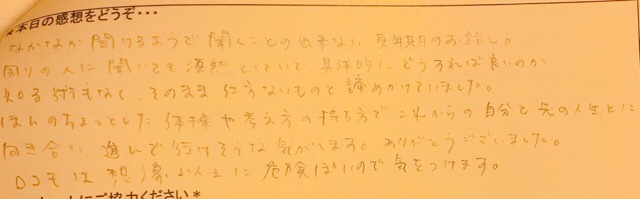 ★本日の感想をどうぞ・・・
なかなか聞けるようで聞くことの出来ない更年期のお話し。
周りの人に聞いても漠然としていて、具体的にどうすれば良いのか
知る術もなく、そのまま仕方ないものと諦めかけていました。
ほんのちょっとした体操や考え方の持ち方で、これからの自分と先の人生とに
向き合い、進んで行けそうな気がします。ありがとうございました。
ロコモは想像以上に危険ぽいので気をつけます。
にご協力ください＊